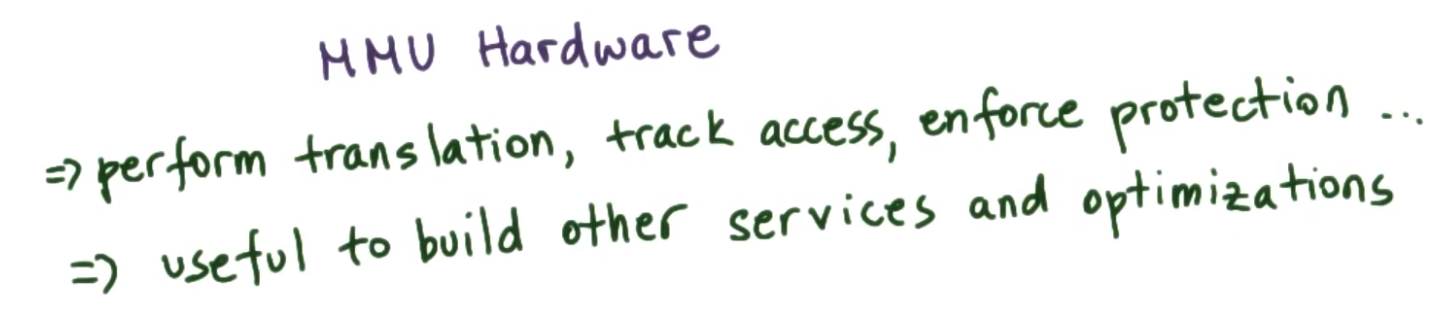 MMU Hardware
=> perform translation, track access, enforce protection ...
=> useful to build other services and optimizations